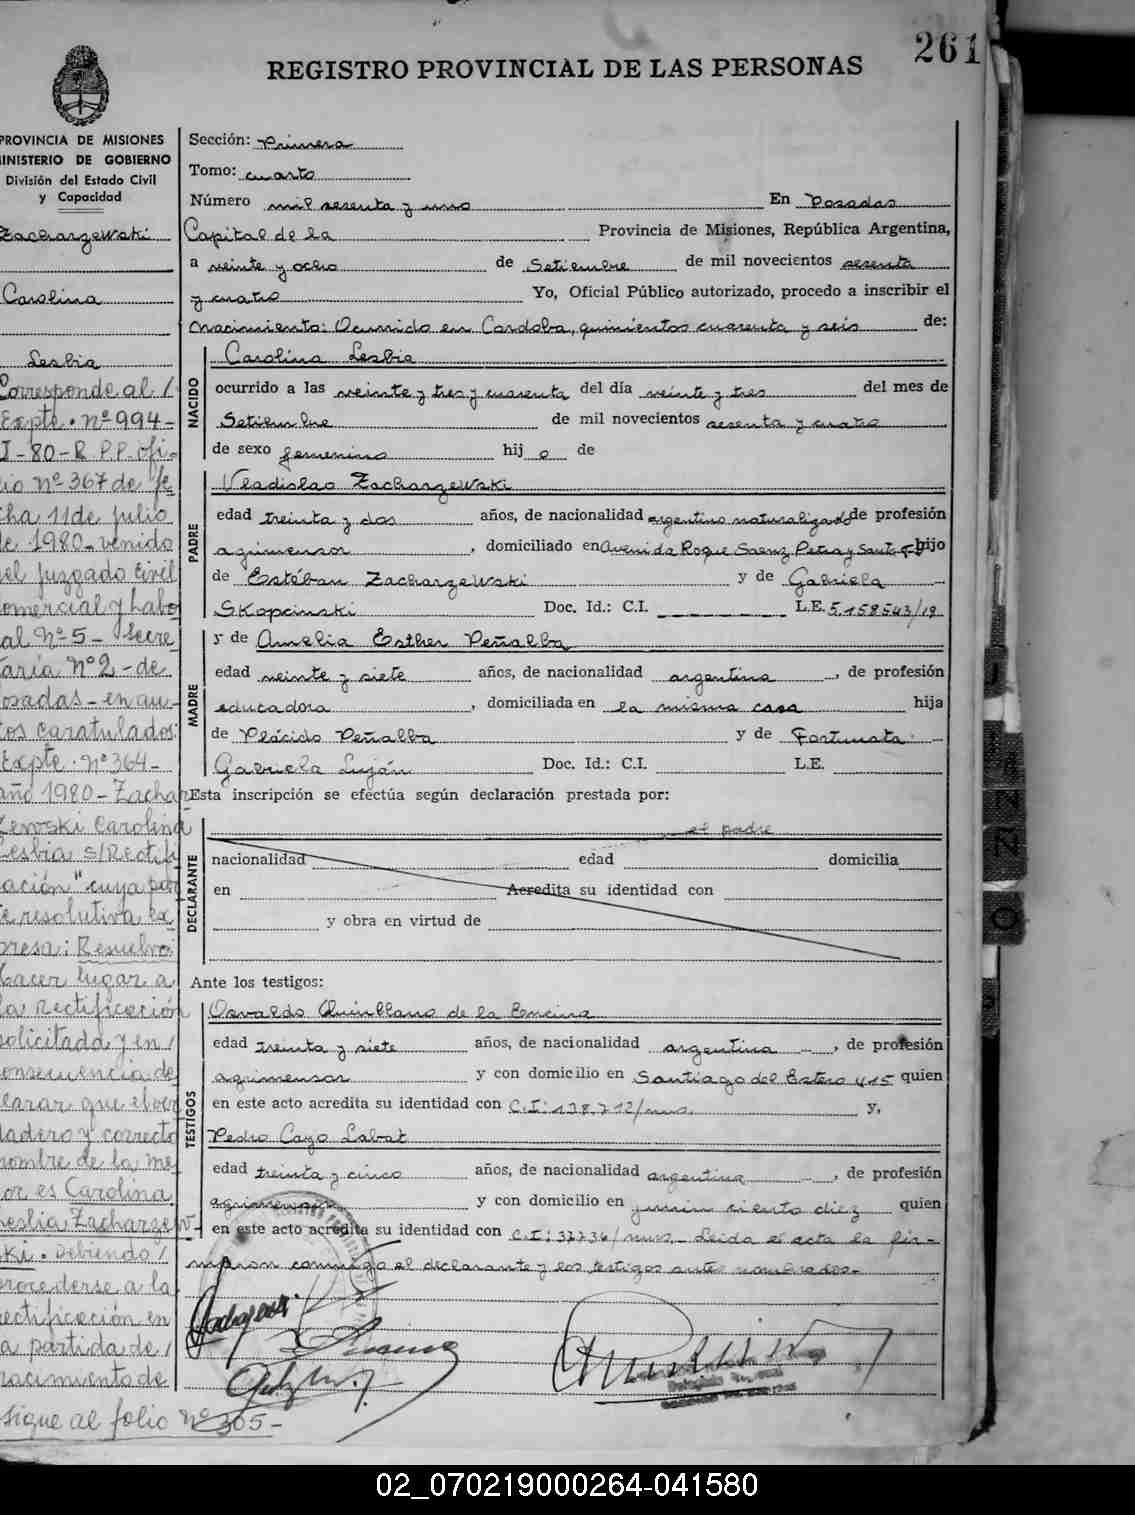 261
REGISTRO PROVINCIAL DE LAS PERSONAS
PROVINCIA DE MISIONES
MINISTERIO DE GOBIERNO
División del Estado Civil
y Capacidad
Zacharzewski
Carolina
Lesbia
Corresponde al /
Expte. nº 994-
J-80-R P.P. ofi-
cio nº 367 de fe
cha 11 de julio
de 1980 - venido
del juzgado Civil
Comercial y Labo
ral Nº 5 - Secre
taría Nº 2 - de
Posadas - en au-
tos caratulados:
Expte. Nº 364-
año 1980 - Zachar
zewski Carolina
Lesbia s/Rectifi
cación" cuya par
te resolutiva ex
presa: Resuelvo:
Hacer lugar a
la Rectificación
solicitada y en /
consecuencia de
clarar que el ver
dadero y correcto
nombre de la me
nor es Carolina
Leslia Zacharzew-
ski. Debiendo /
procederse a la
rectificación en
la partida de /
nacimiento de
sigue al folio Nº 305-
Sección: Primera
Tomo: cuarto
Número mil sesenta y uno En Posadas
Capital de la Provincia de Misiones, República Argentina,
a veinte y ocho de Setiembre de mil novecientos sesenta
y cuatro Yo, Oficial Público autorizado, procedo a inscribir el
nacimiento: Ocurrido en Cordoba, quinientos cuarenta y seis de:
NACIDO
Carolina Lesbia
ocurrido a las veinte y tres y cuarenta del día veinte y tres del mes de
Setiembre de mil novecientos sesenta y cuatro
de sexo femenino hij o de
PADRE
Vladislao Zacharzewski
edad treinta y dos años, de nacionalidad argentino naturalizado de profesión
agrimensor, domiciliado en Avenida Roque Saenz Peña y Santa Fe hijo
de Estéban Zacharzewski y de Gabriela
Skopcinski Doc. Id.: C.I. L.E. 5.158.543/19
MADRE
y de Amelia Esther Peñalba
edad veinte y siete años, de nacionalidad argentina, de profesión
educadora, domiciliada en la misma casa hija
de Plácido Peñalba y de Fortunata
Gabriela Luján Doc. Id.: C.I. L.E.
Esta inscripción se efectúa según declaración prestada por:
DECLARANTE
el padre
nacionalidad edad domicilia
en Acredita su identidad con
y obra en virtud de
Ante los testigos:
TESTIGOS
Osvaldo Quinllano de la Encina
edad treinta y siete años, de nacionalidad argentina, de profesión
agrimensor y con domicilio en Santiago del Estero 415 quien
en este acto acredita su identidad con C.I: 138.712/mns. y,
Pedro Cayo Labat
edad treinta y cinco años, de nacionalidad argentina, de profesión
agrimensor y con domicilio en Junín ciento diez quien
en este acto acredita su identidad con C.I: 37736/mns.- Leida el acta la fir-
maron conmigo el declarante y los testigos antes nombrados.-
02_070219000264-041580